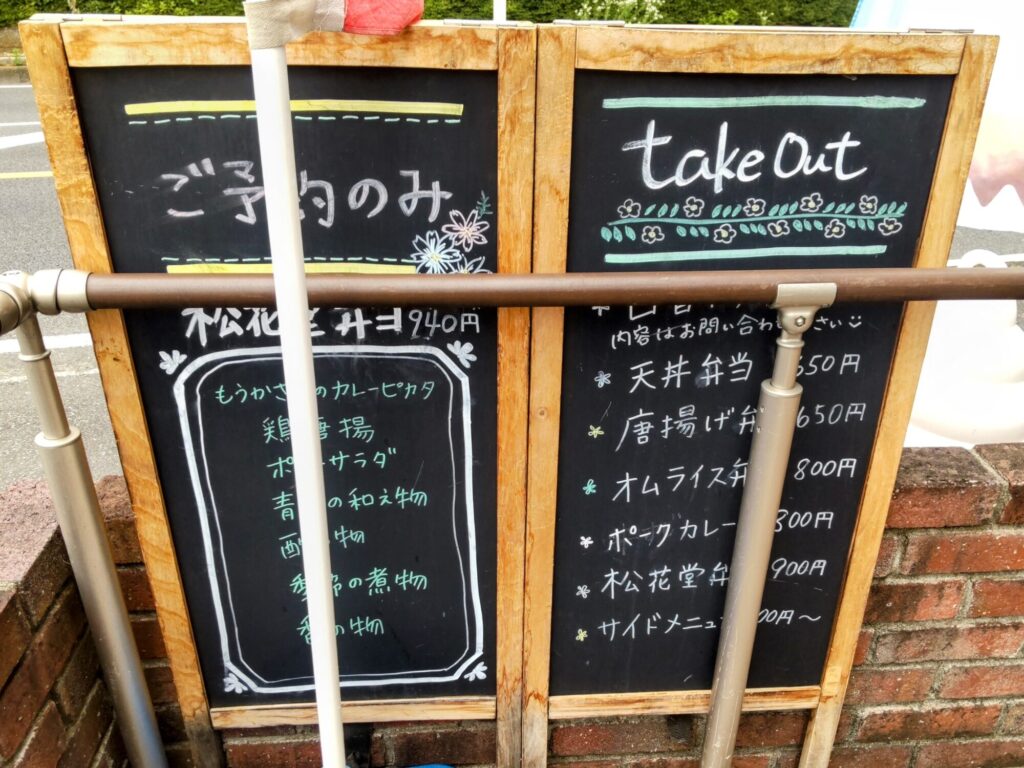 ご予約のみ
松花堂弁当 940円
もうかさのカレーピカタ
鶏唐揚
ポサラダ
青の和え物
酢物
季節の煮物
香の物
take Out
内容はお問い合わさい
天丼弁当 650円
唐揚げ弁 650円
オムライス弁 800円
ポークカレー 800円
松花堂弁 900円
サイドメニュー 00円～